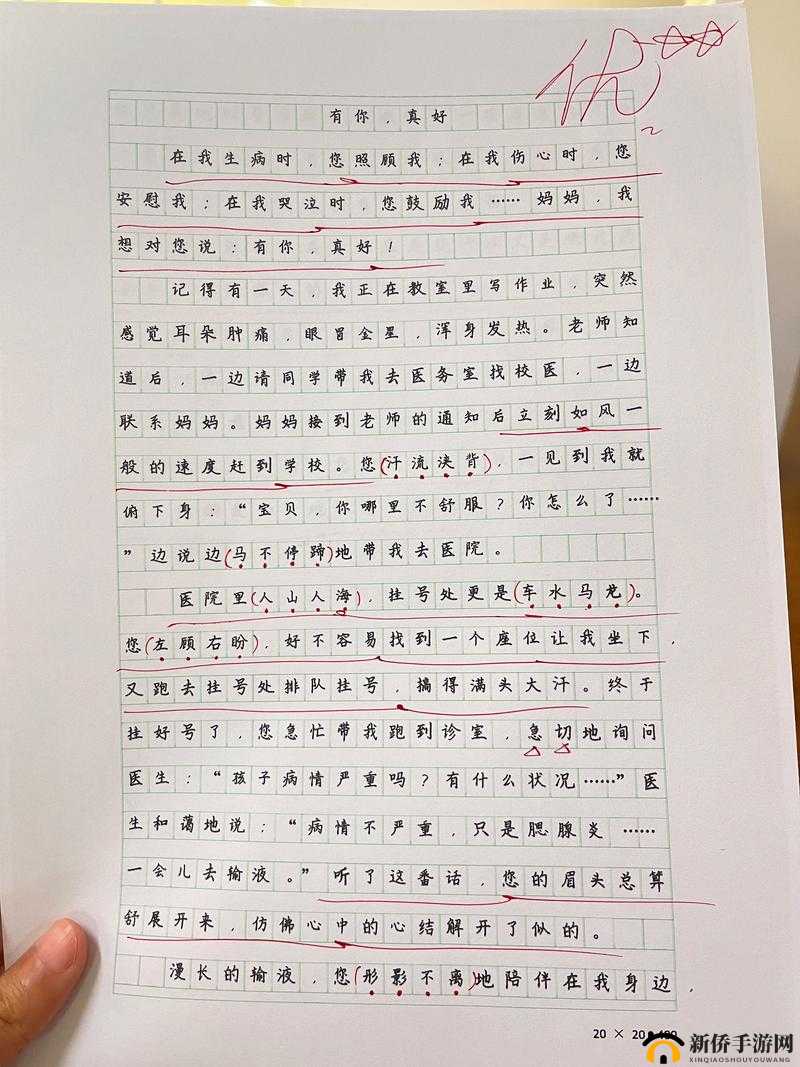 优
2
有你，真好
在我生病时，您照顾我；在我伤心时，您
安慰我；在我哭泣时，您鼓励我……妈妈，我
想对您说：有你，真好！
记得有一天，我正在教室里写作业，突然
感觉耳朵肿痛，眼冒金星，浑身发热。老师知
道后，一边请同学带我去医务室找校医，一边
联系妈妈。妈妈接到老师的通知后立刻如风一
般的速度赶到学校。您(汗流浃背)，一见到我就
俯下身：“宝贝，你哪里不舒服？你怎么了……
”边说边(马不停蹄)地带我去医院。
医院里(人山人海)，挂号处更是(车水马龙)。
您(左顾右盼)，好不容易找到一个座位让我坐下，
又跑去挂号处排队挂号，搞得满头大汗。终于
挂好号了，您急忙带我跑到诊室，急切地询问
医生：“孩子病情严重吗？有什么状况……”医
生和蔼地说：“病情不严重，只是腮腺炎……
一会儿去输液。”听了这番话，您的眉头总算
舒展开来，仿佛心中的心结解开了似的。
漫长的输液，您(形影不离)地陪伴在我身边，
20 × 20
新侨手游网
XINQIAOSHOUYOUWANG